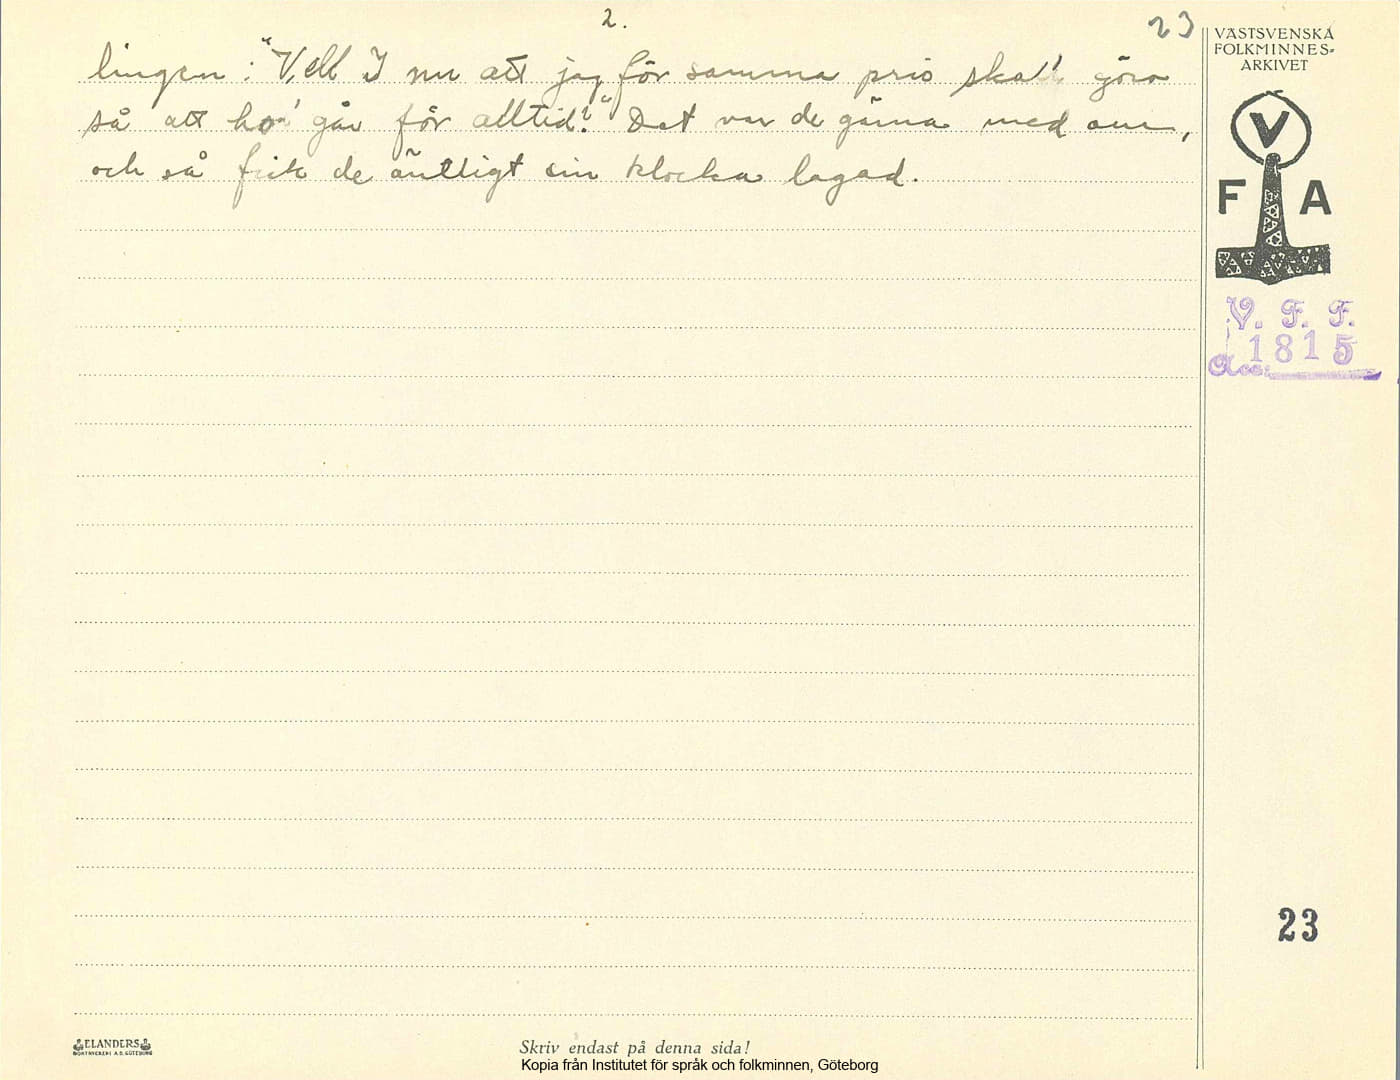 2.
23
lingen: "Vell I nu att jag för samma pris skall göra
så att ho' går för alltid?" Det var de gärna med om,
och så fick de äntligt sin klocka lagad.
VÄSTSVENSKA
FOLKMINNES-
ARKIVET
V
F A
V. F. F.
1815
Acc:
23
ELANDERS
BOKTRYCKERI A.B. GÖTEBORG
Skriv endast på denna sida!
Kopia från Institutet för språk och folkminnen, Göteborg